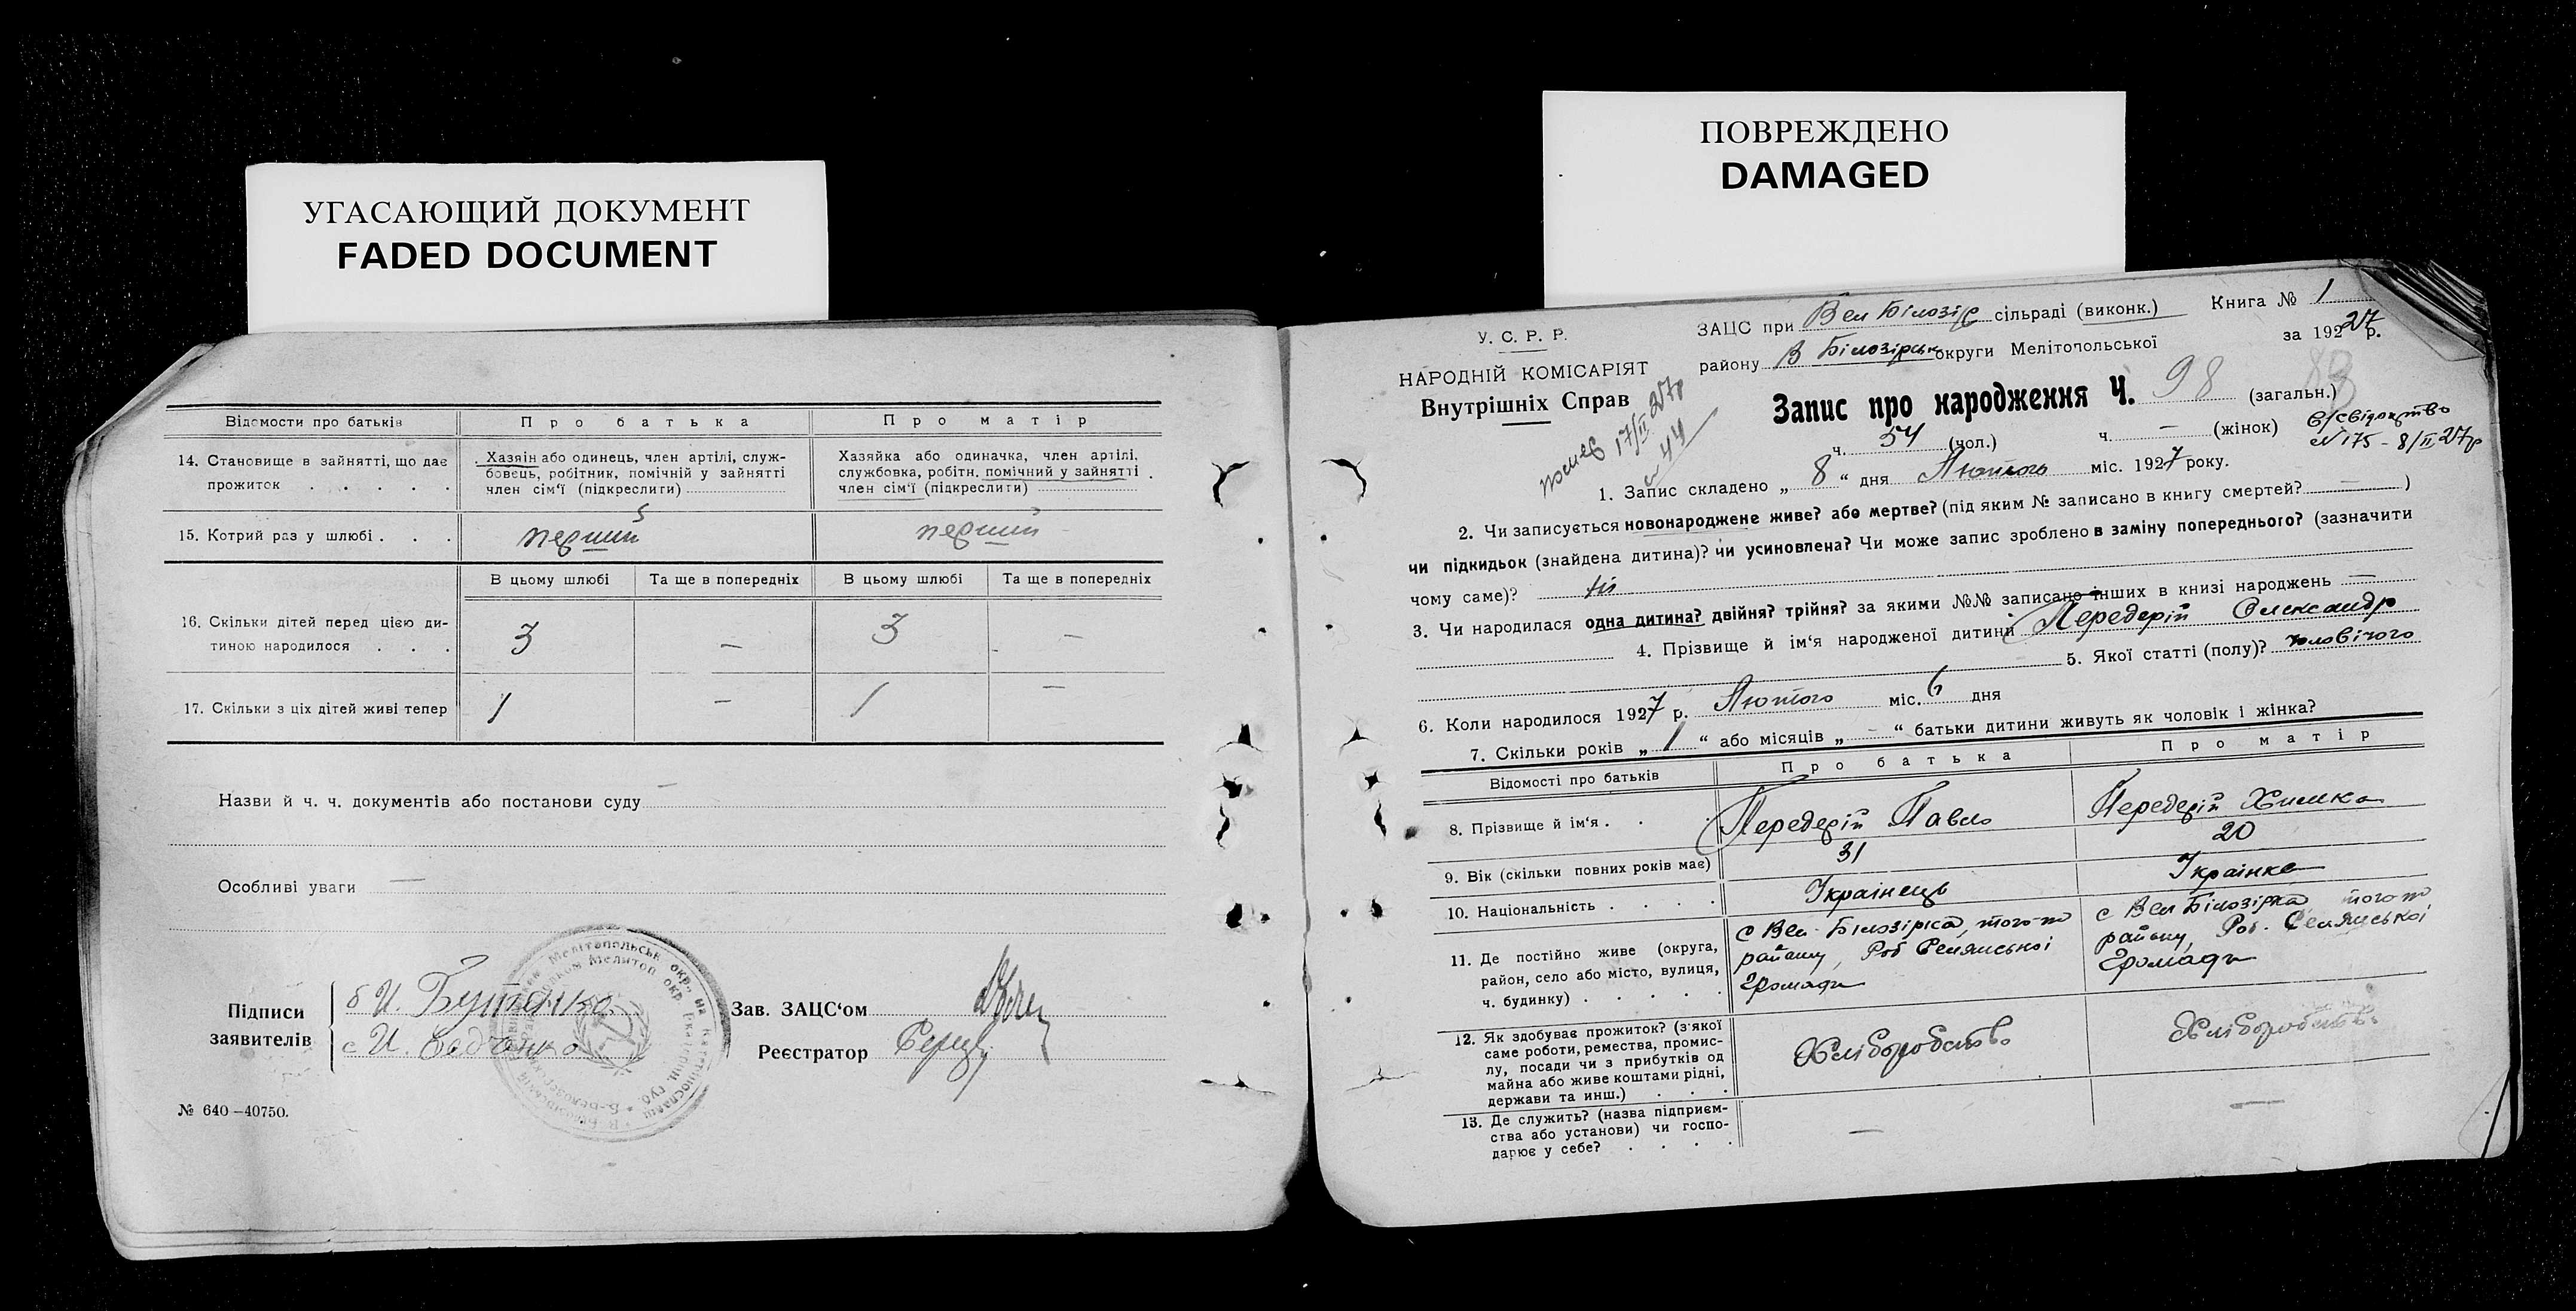 УГАСАЮЩИЙ ДОКУМЕНТ
FADED DOCUMENT
Відомости про батьків
Про батька
Про матір
14. Становище в зайнятті, що дає прожиток . . . . .
Хазяін або одинець, член артілі, служ-
бовець, робітник, помічній у зайнятті
член сім'ї (підкреслити)
Хазяйка або одиначка, член артілі,
службовка, робітн. помічний у зайнятті .
член сім'ї (підкреслити)
15. Котрий раз у шлюбі . . .
перший
перший
В цьому шлюбі
Та ще в попередніх
В цьому шлюбі
Та ще в попередніх
16. Скільки дітей перед цією ди-
тиною народилося . . .
3 — 3 —
17. Скільки з ціх дітей живі тепер
1 — 1 —
Назви й ч. ч. документів або постанови суду —
Особливі уваги —
Підписи
заявителів
б И. Бутенко
с И.
Зав. ЗАЦС'ом
Реєстратор
№ 640—40750.
ПОВРЕЖДЕНО
DAMAGED
У. С. Р. Р.
НАРОДНІЙ КОМІСАРІЯТ
Внутрішніх Справ
ЗАЦС при Вел Білозір сільраді (виконк.)
Книга № 1
району В Білозірськ округи Мелітопольської
за 1927 р.
Запис про народження Ч. 98 (загальн.)
83
ч. 54 (чол.) ч. — (жінок)
№ 175 – 8/II 27р
помер 17/II 27р
№ 44
1. Запис складено „ 8 “ дня Лютого міс. 1927 року.
2. Чи записується новонароджене живе? або мертве? (під яким № записано в книгу смертей? — )
чи підкидьок (знайдена дитина)? чи усиновлена? Чи може запис зроблено в заміну попереднього? (зазначити
чому саме)? ні
3. Чи народилася одна дитина? двійня? трійня? за якими №№ записано інших в книзі народжень —
4. Прізвище й ім'я народженої дитини Передерій Олександр
5. Якої статті (полу)? чоловічого
6. Коли народилося 1927 р. Лютого міс. 6 дня
7. Скільки років „ 1 “ або місяців „ — “ батьки дитини живуть як чоловік і жінка?
Відомості про батьків
Про батька
Про матір
8. Прізвище й ім'я . . .
Передерій Павло
Передерій Химка
9. Вік (скільки повних років має)
31
20
10. Національність . . . .
Українець
Українке
11. Де постійно живе (округа,
район, село або місто, вулиця,
ч. будинку) . . . . .
с Вел-Білозірка, того-ж
району, Роб Селянської
Громади
с Вел Білозірка того ж
району, Роб. Селянської
Громади
12. Як здобуває прожиток? (з'якої
саме роботи, ремества, промис-
лу, посади чи з прибутків од
майна або живе коштами рідні,
держави та инш.) . . .
Хліборобство
Хліборобство
13. Де служить? (назва підприєм-
ства або установи) чи госпо-
дарює у себе? . . . .
—
—